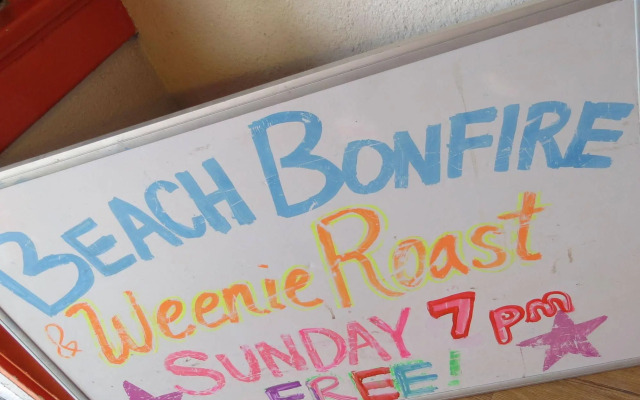 BEACH BONFIRE
& Weenie Roast
SUNDAY 7 pm
FREE!